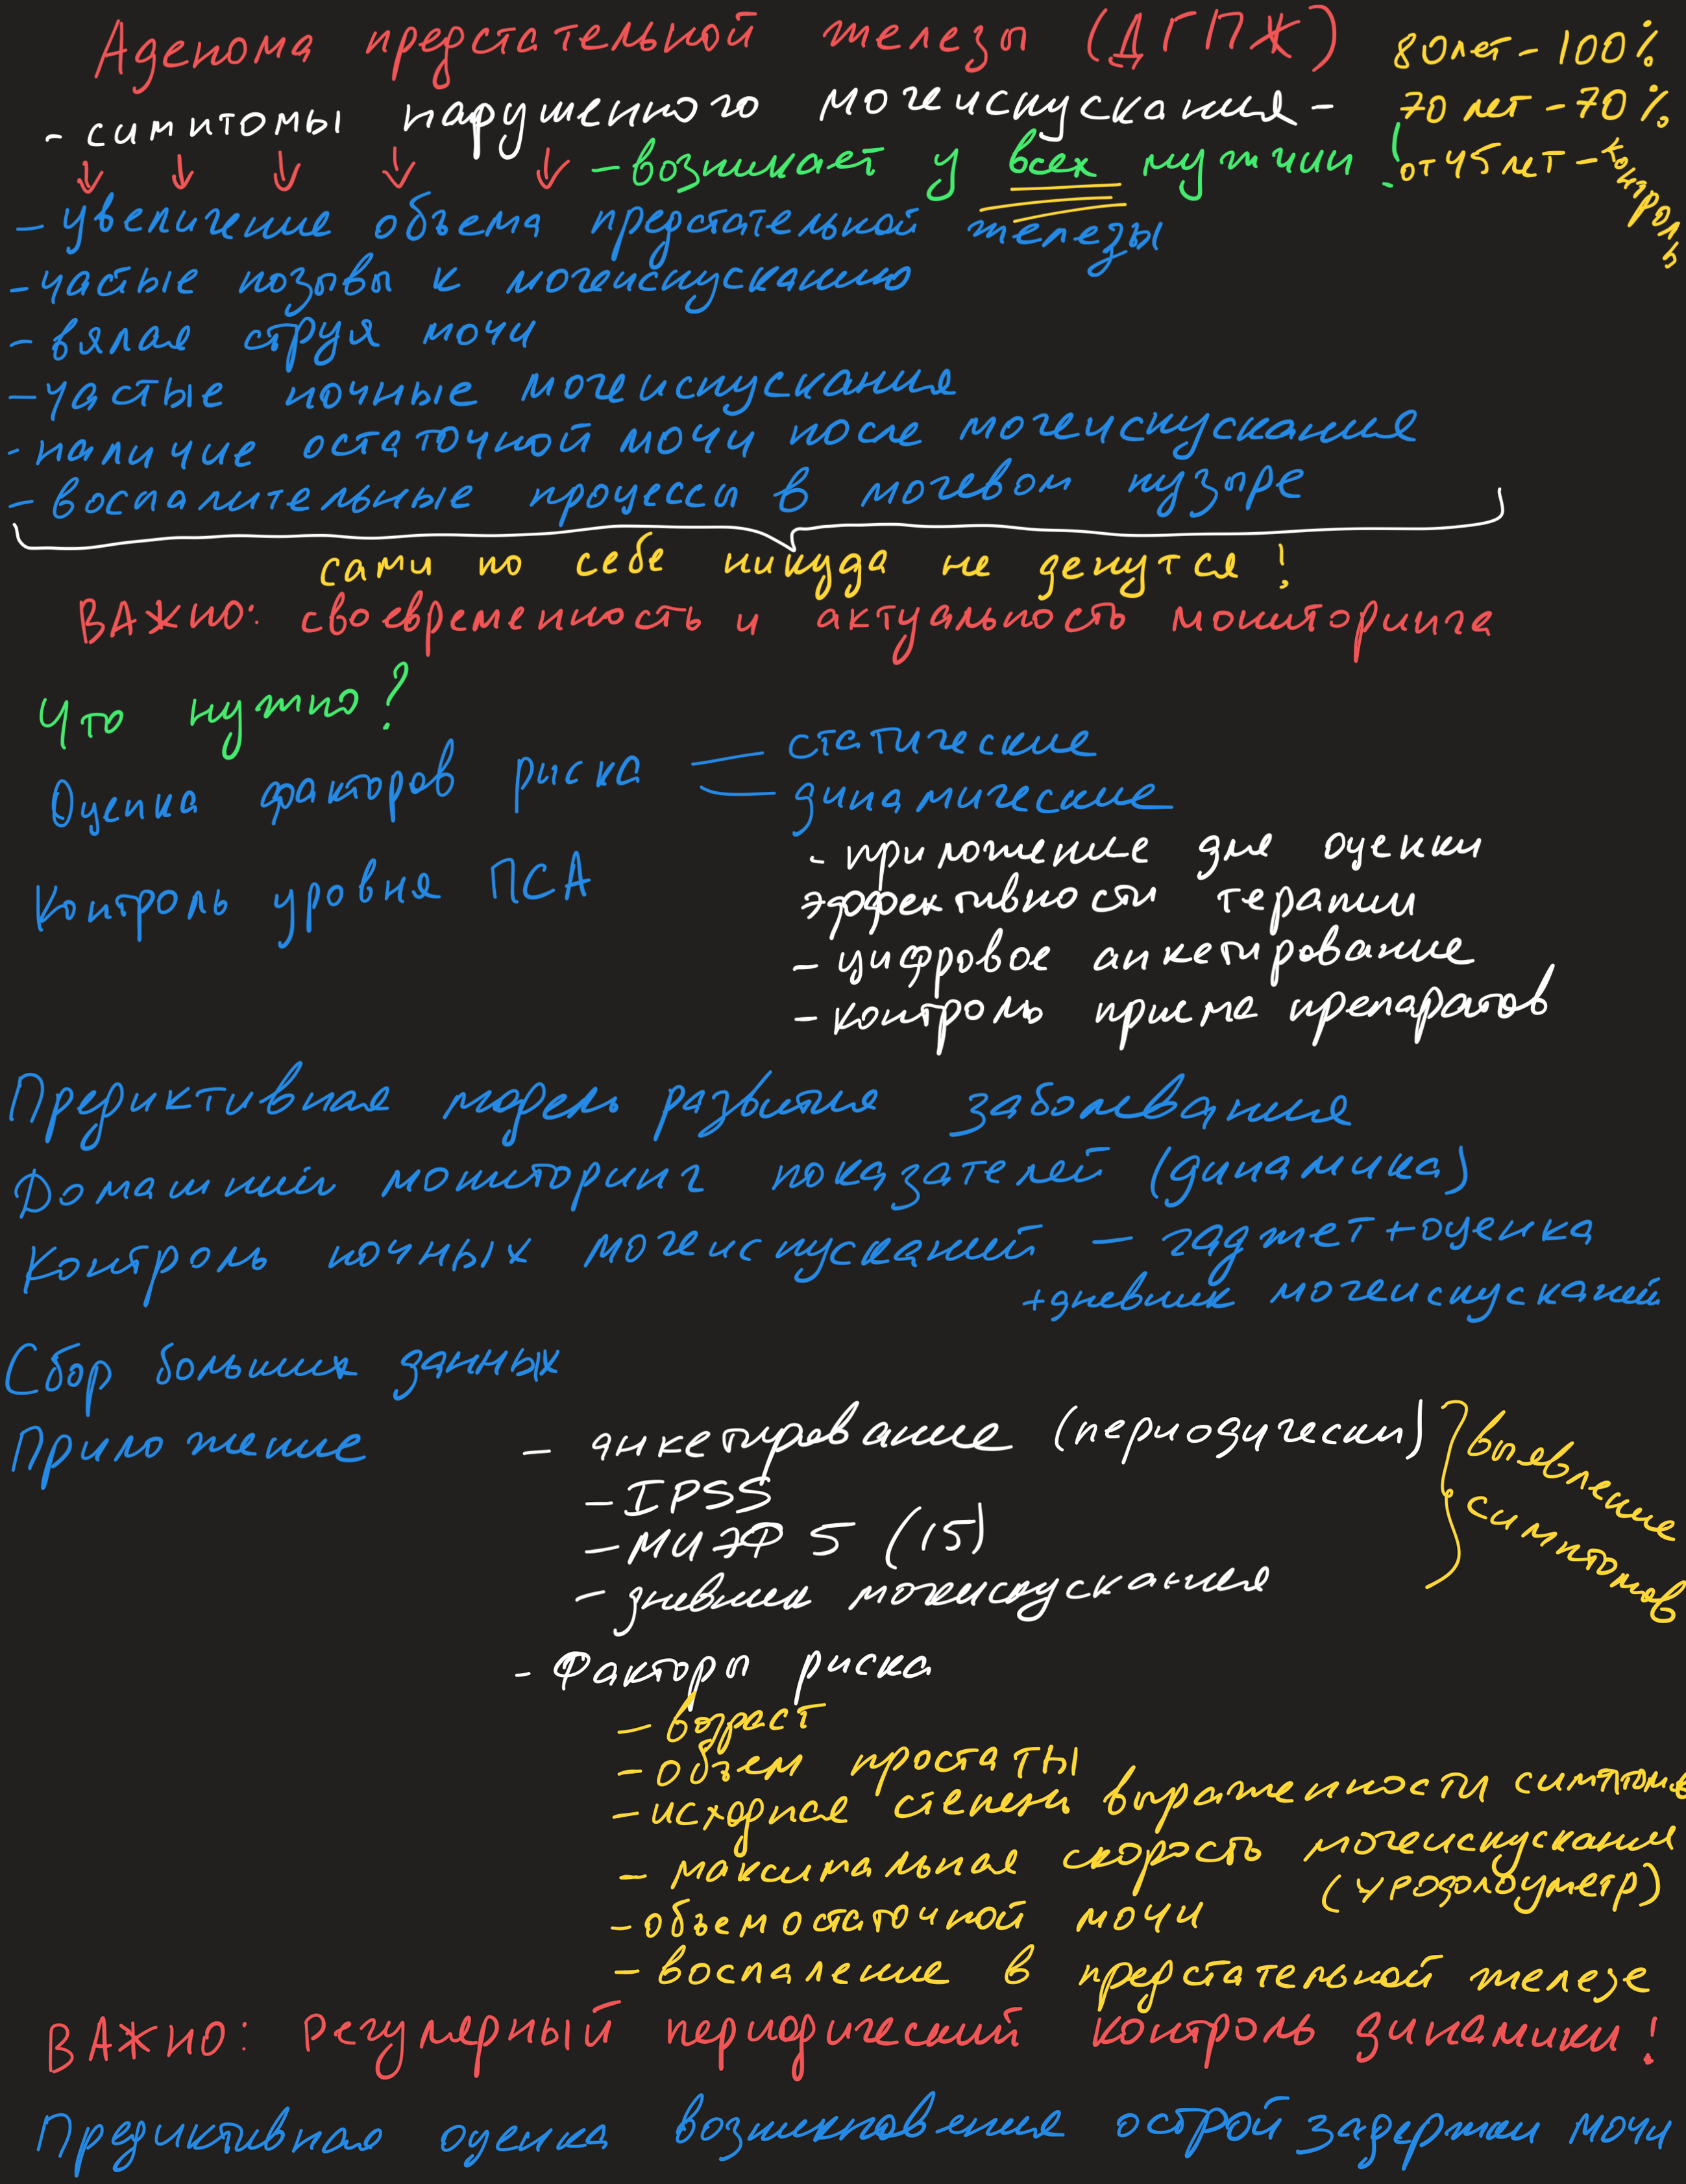 Аденома предстательной железы (ДГПЖ)
80 лет - 100%
- симптомы нарушенного мочеиспускания -
70 лет - 70%
- возникает у всех мужчин!
от 45 лет - контроль
- увеличение объема предстательной железы
- частые позывы к мочеиспусканию
- вялая струя мочи
- частые ночные мочеиспускания
- наличие остаточной мочи после мочеиспускания
- воспалительные процессы в мочевом пузыре
сами по себе никуда не денутся!
ВАЖНО: своевременность и актуальность мониторинга
Что нужно?
Оценка факторов риска
- статические
- динамические
Контроль уровня ПСА
- приложение для оценки
эффективности терапии
- цифровое анкетирование
- контроль приема препаратов
Предиктивная модель развития заболевания
Домашний мониторинг показателей (динамика)
Контроль ночных мочеиспусканий - гаджет + оценка
+ дневник мочеиспусканий
Сбор больших данных
Приложение
- анкетирование (периодически)
- IPSS
- МИЭФ 5 (15)
- дневник мочеиспускания
выявление
симптомов
- Факторы риска
- возраст
- объем простаты
- исходная степень выраженности симптомов
- максимальная скорость мочеиспускания
(уродолоуметр)
- объем остаточной мочи
- воспаление в предстательной железе
ВАЖНО: регулярный периодический контроль динамики!
Предиктивная оценка возникновения острой задержки мочи